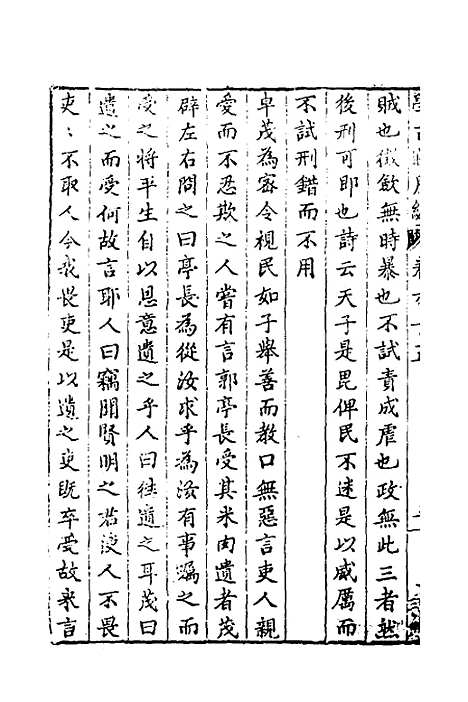 賊也徵斂無時暴也不試責成虐也政無此三者然
後刑可即也詩云天子是毘俾民不迷是以威厲而
不試刑錯而不用
卓茂為密令視民如子舉善而教口無惡言吏人親
愛而不忍欺之人嘗有言郭亭長受其米肉遺者茂
辟左右問之曰亭長為從汝求乎為汝有事囑之而
受之將平生自以恩意遺之乎人曰往遺之耳茂曰
遺之而受何故言耶人曰竊聞賢明之君使人不畏
吏〻不取人今我畏吏是以遺之吏既卒受故來言